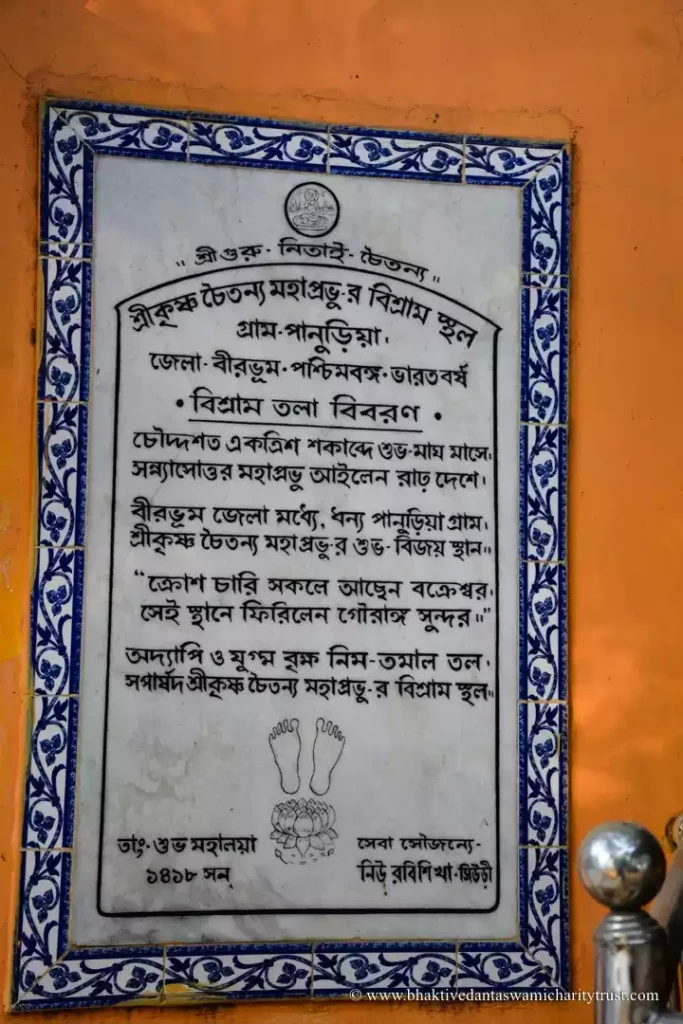 " শ্রীগুরু - নিতাই - চৈতন্য "
শ্রীকৃষ্ণ চৈতন্য মহাপ্রভু-র বিশ্রাম স্থল
গ্রাম-পানুড়িয়া।
জেলা-বীরভূম-পশ্চিমবঙ্গ-ভারতবর্ষ
• বিশ্রাম তলা বিবরণ •
চৌদ্দশত একত্রিশ শকাব্দে শুভ-মাঘ মাসে।
সন্ন্যাসোত্তর মহাপ্রভু আইলেন রাঢ় দেশে।
বীরভূম জেলা মধ্যে, ধন্য পানুড়িয়া গ্রাম।
শ্রীকৃষ্ণ চৈতন্য মহাপ্রভু-র শুভ-বিজয় স্থান॥
"ক্রোশ চারি সকলে আছেন বক্রেশ্বর।
সেই স্থানে ফিরিলেন গৌরাঙ্গ সুন্দর॥"
অদ্যাপি ও যুগ্ম বৃক্ষ নিম-তমাল তল।
সপার্ষদ শ্রীকৃষ্ণ চৈতন্য মহাপ্রভু-র বিশ্রাম স্থল॥
তাং-শুভ মহালয়া
১৪১৮ সন্
সেবা সৌজন্যে-
নিউ রবিশিখা-সিউড়ী
© www.bhaktivedantaswamicharitytrust.com